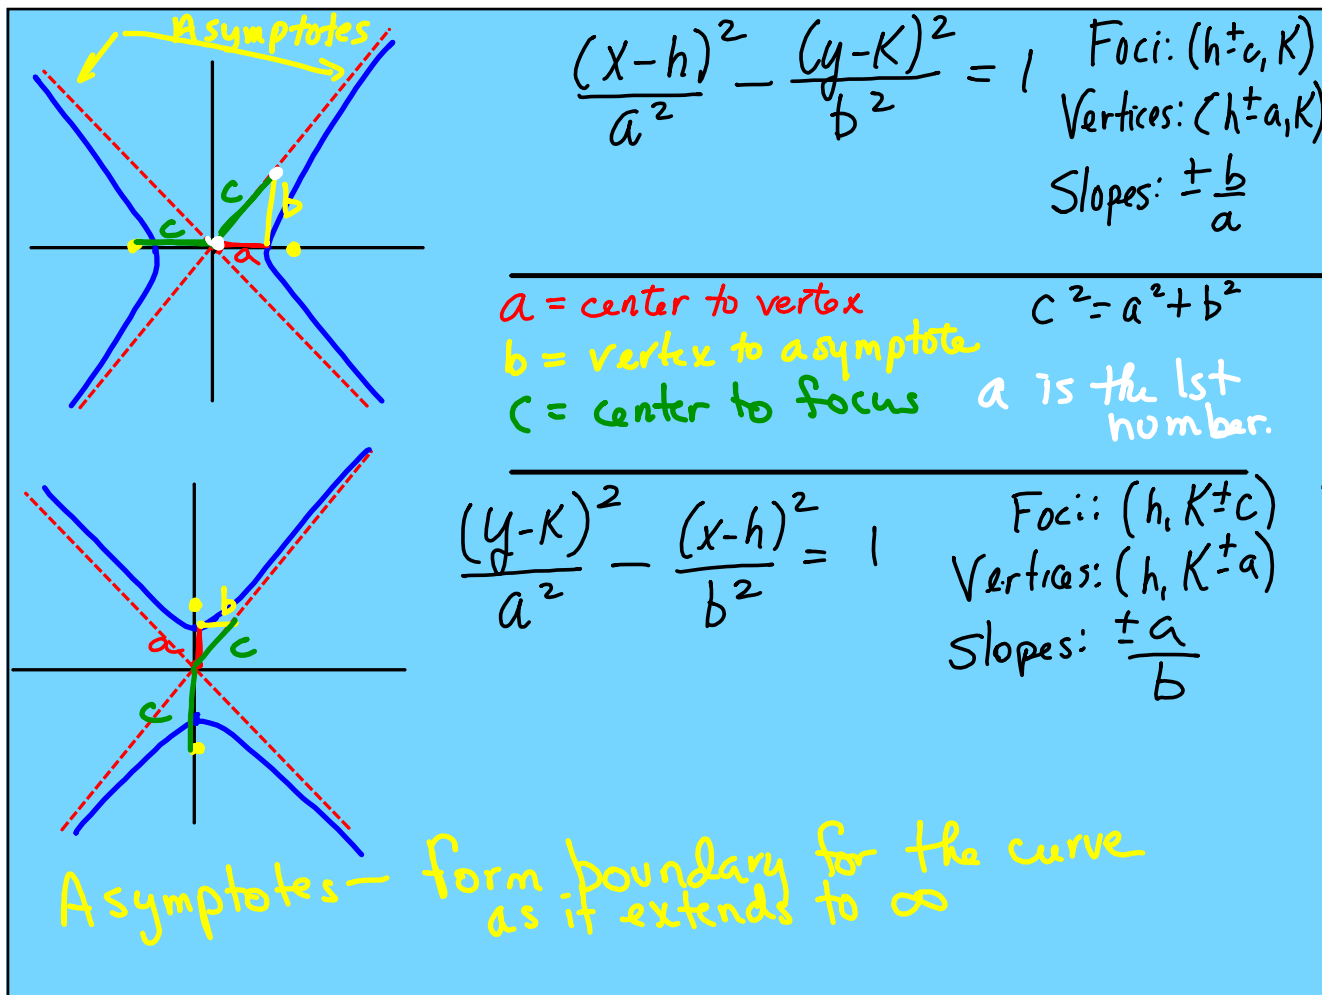 Asymptotes
c
c
b
a
(x-h)²/a² - (y-K)²/b² = 1
Foci: (h±c, K)
Vertices: (h±a, K)
Slopes: ± b/a
a = center to vertex
b = vertex to asymptote
c = center to focus
c² = a² + b²
a is the 1st
number.
b
a
c
c
(y-K)²/a² - (x-h)²/b² = 1
Foci: (h, K±c)
Vertices: (h, K±a)
Slopes: ± a/b
Asymptotes— form boundary for the curve
as it extends to ∞